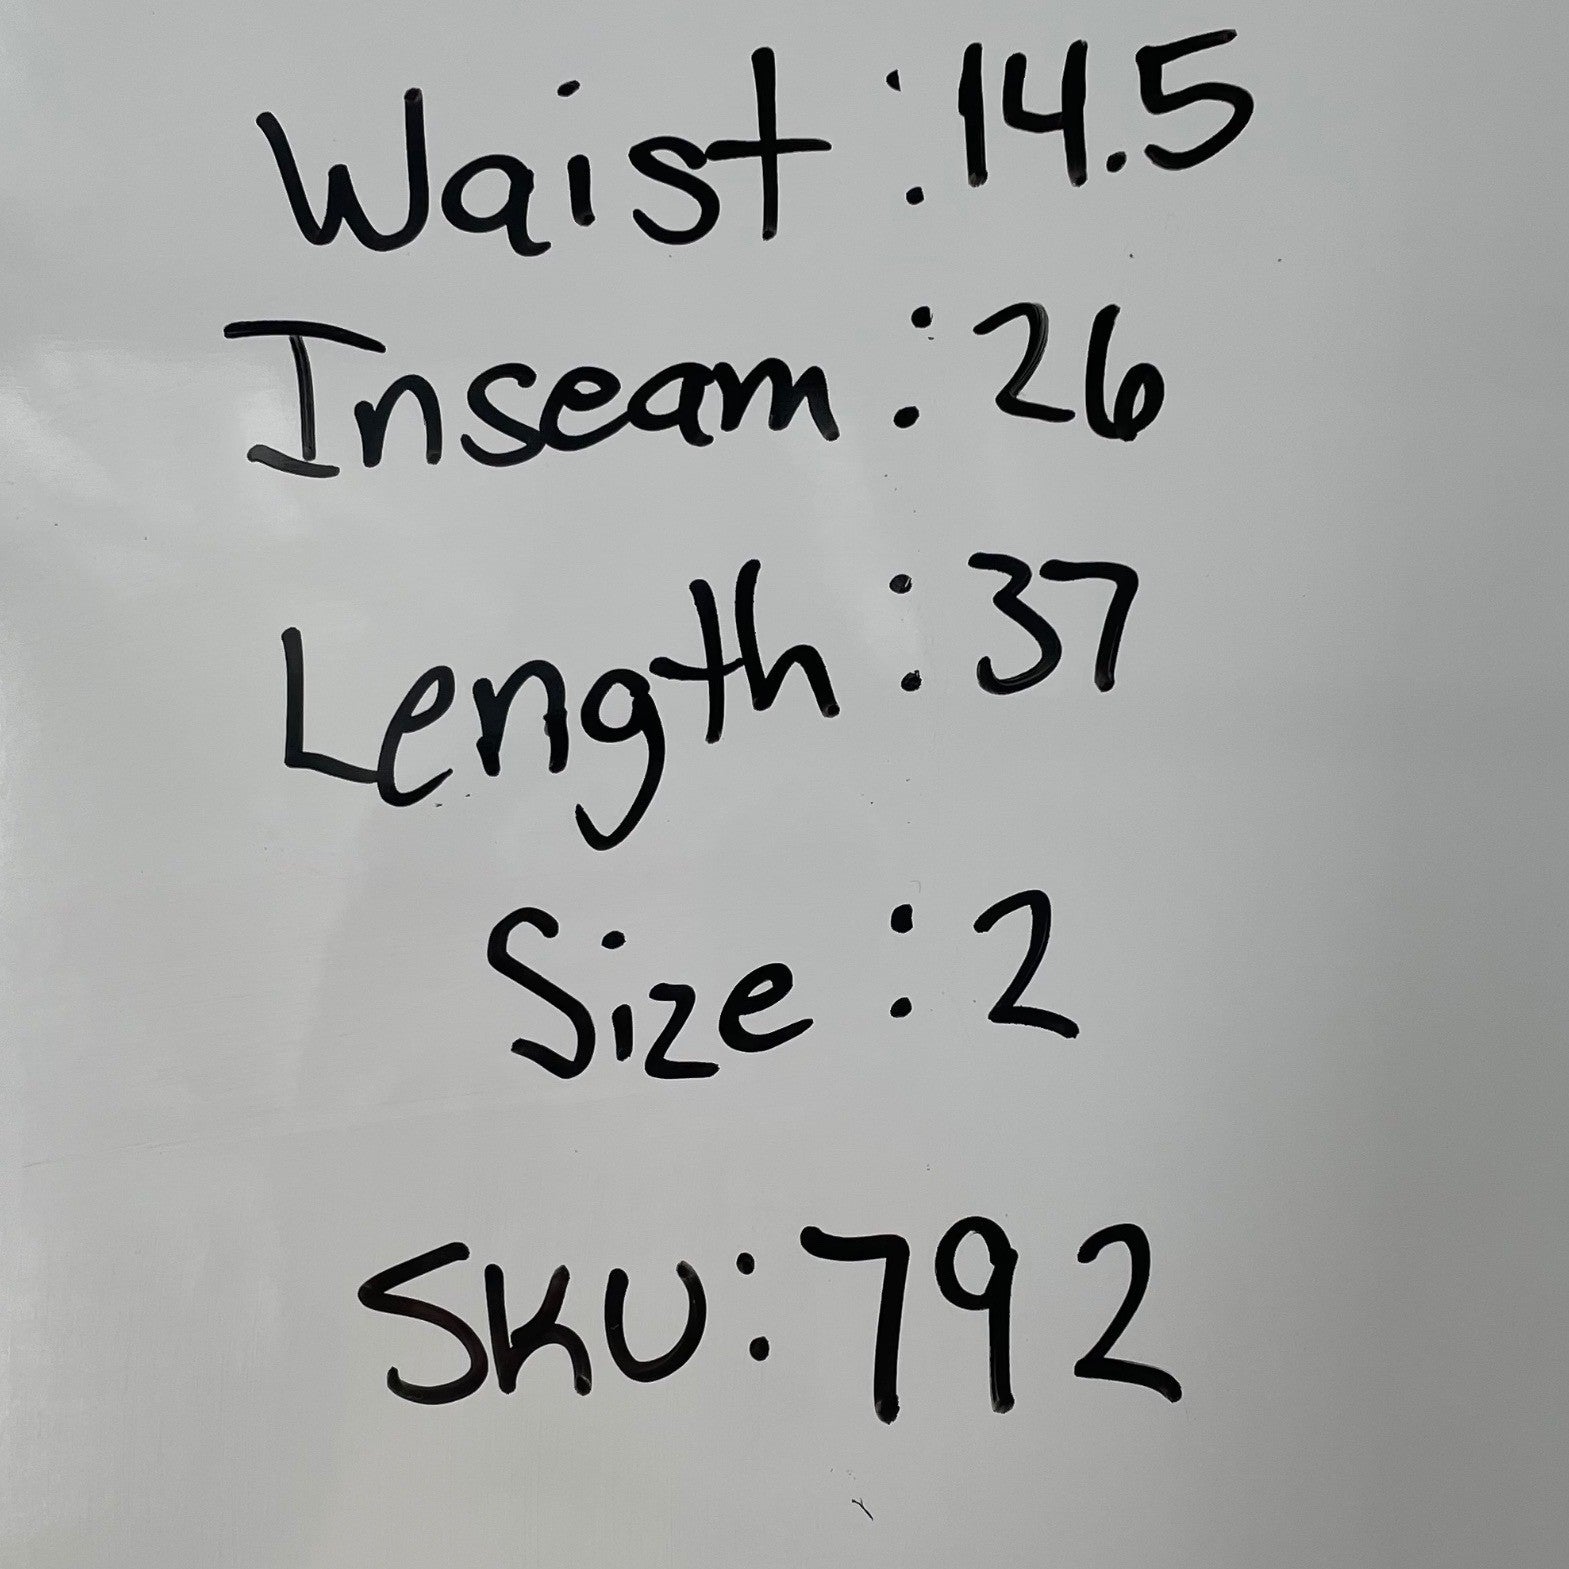 Waist : 14.5
Inseam : 26
Length : 37
Size : 2
SKU: 792